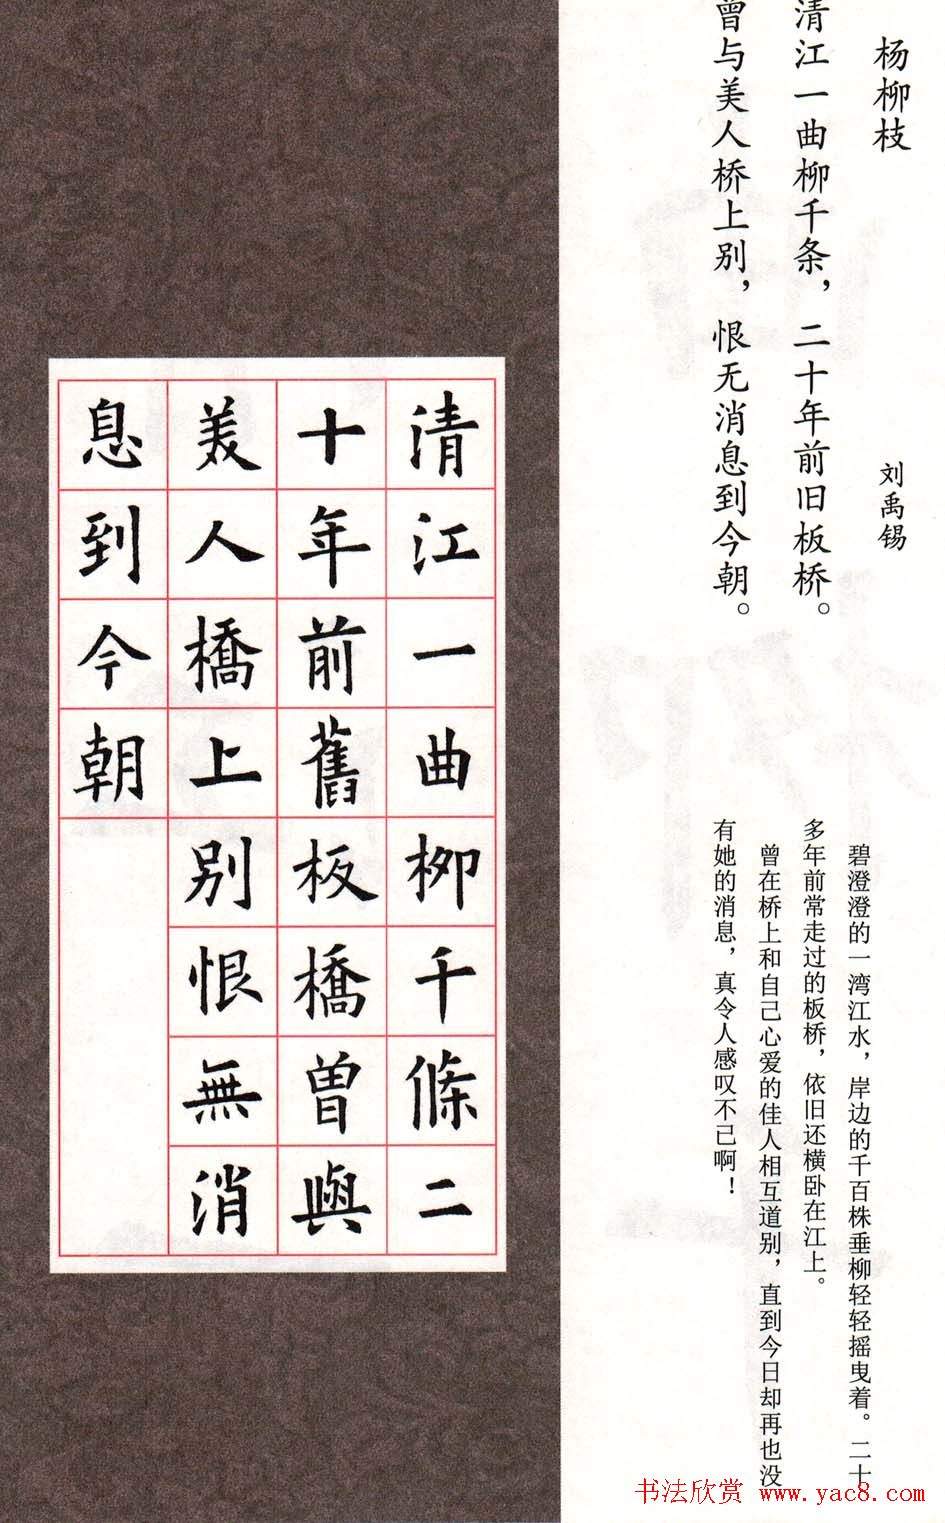 杨柳枝
刘禹锡
清江一曲柳千条，二十年前旧板桥。
曾与美人桥上别，恨无消息到今朝。
碧澄澄的一湾江水，岸边的千百株垂柳轻轻摇曳着。二十
多年前常走过的板桥，依旧还横卧在江上。
曾在桥上和自己心爱的佳人相互道别，直到今日却再也没
有她的消息，真令人感叹不已啊！
清江一曲柳千條二
十年前舊板橋曾與
美人橋上別恨無消
息到今朝
书法欣赏 www.yac8.com